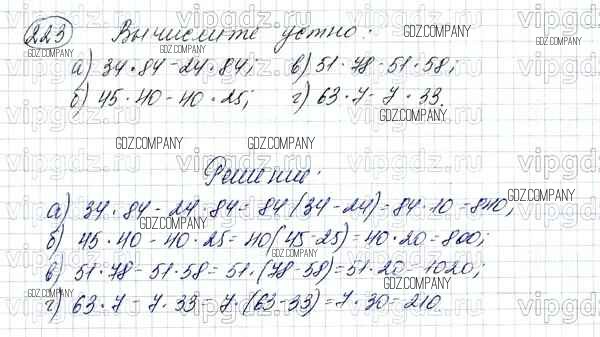 223 Вычислите устно:
а) 34·84-24·84; в) 51·78-51·58;
б) 45·40-40·25; г) 63·7-7·33.
Решение:
а) 34·84-24·84=84(34-24)=84·10=840;
б) 45·40-40·25=40(45-25)=40·20=800;
в) 51·78-51·58=51·(78-58)=51·20=1020;
г) 63·7-7·33=7·(63-33)=7·30=210.
GDZ.COMPANY
vipgdz.ru